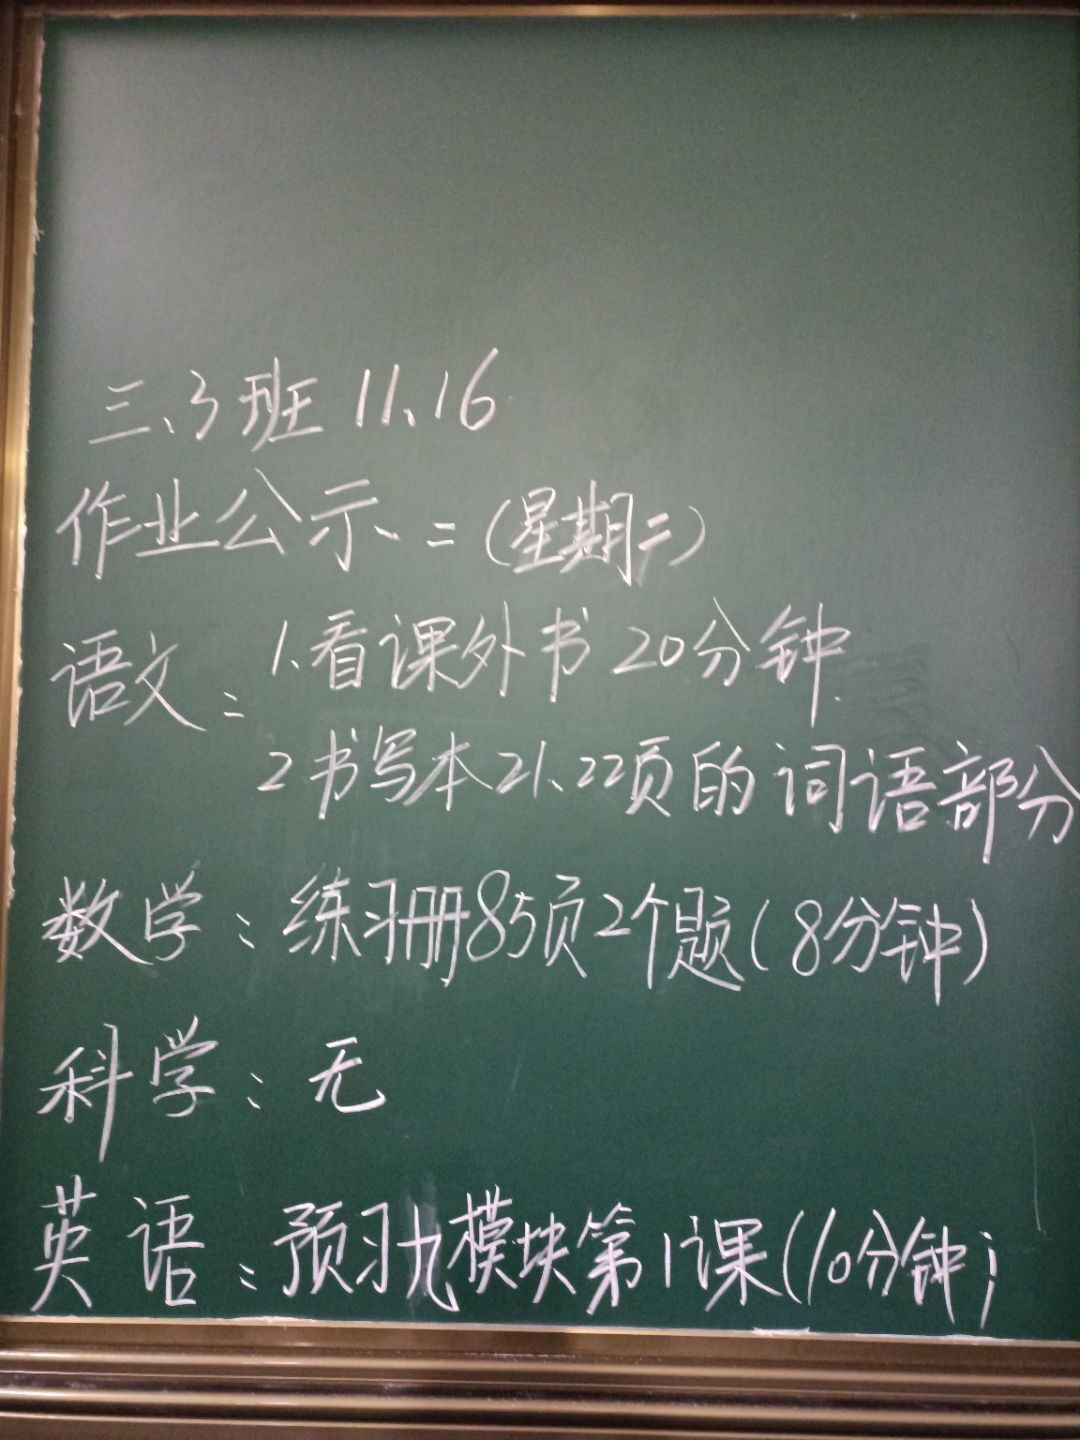 三、3班 11、16
作业公示:(星期二)
语文: 1.看课外书20分钟.
2书写本21、22页的词语部分
数学:练习册85页2个题(8分钟)
科学:无
英语:预习九模块第1课(10分钟)